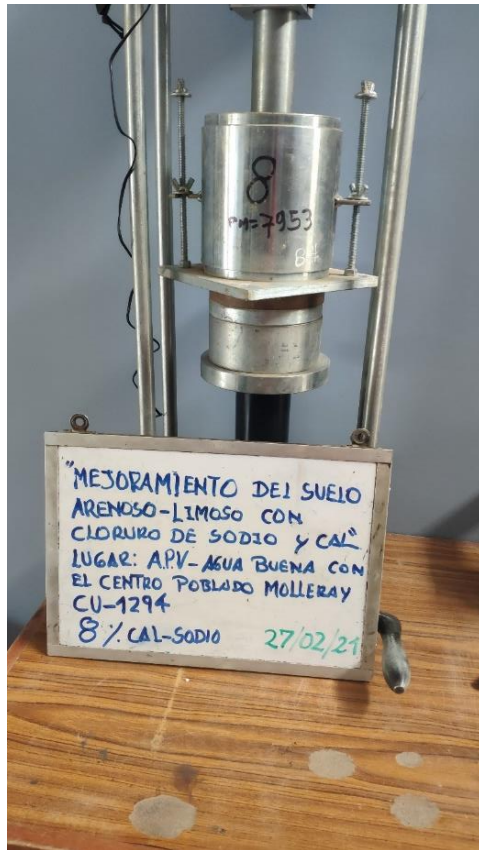 8
PM=7953
"MEJORAMIENTO DEL SUELO
ARENOSO-LIMOSO CON
CLORURO DE SODIO Y CAL"
LUGAR: A.P.V- AGUA BUENA CON
EL CENTRO POBLADO MOLLERAY
CU-1294
8% CAL-SODIO 27/02/21